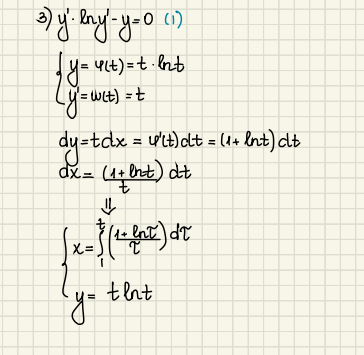 3) y'·lny'-y=0 (1)
{ y=φ(t)=t·lnt
{ y'=ω(t)=t
dy=tdx=φ'(t)dt=(1+lnt)dt
dx=(1+lnt)/t dt
⇓
{ x=∫₁ᵗ((1+lnτ)/τ)dτ
{ y= t lnt